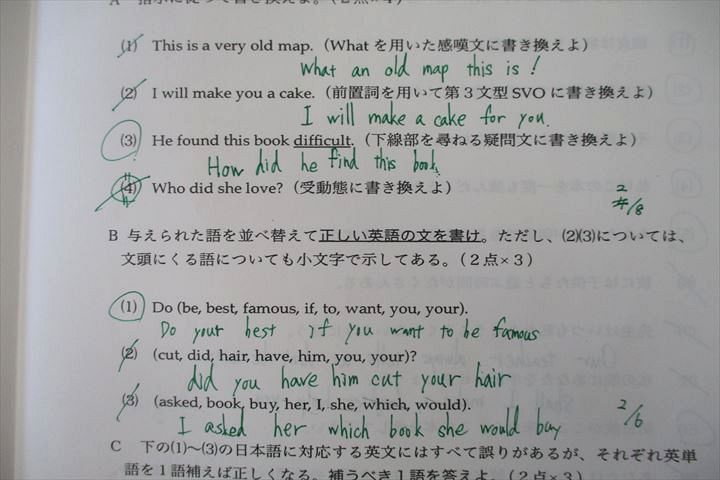 A 指示に従って書き換えよ。(2点×4)
(1) This is a very old map.(What を用いた感嘆文に書き換えよ)
What an old map this is!
(2) I will make you a cake.(前置詞を用いて第3文型 SVO に書き換えよ)
I will make a cake for you.
(3) He found this book difficult.(下線部を尋ねる疑問文に書き換えよ)
How did he find this book
(4) Who did she love?(受動態に書き換えよ)
2
/8
B 与えられた語を並べ替えて正しい英語の文を書け。ただし、(2)(3)については、
文頭にくる語についても小文字で示してある。(2点×3)
(1) Do (be, best, famous, if, to, want, you, your).
Do your best if you want to be famous
(2) (cut, did, hair, have, him, you, your)?
did you have him cut your hair
(3) (asked, book, buy, her, I, she, which, would).
2/6
I asked her which book she would buy
C 下の(1)~(3)の日本語に対応する英文にはすべて誤りがあるが、それぞれ英単
語を1語補えば正しくなる。補うべき1語を答えよ。(2点×3)